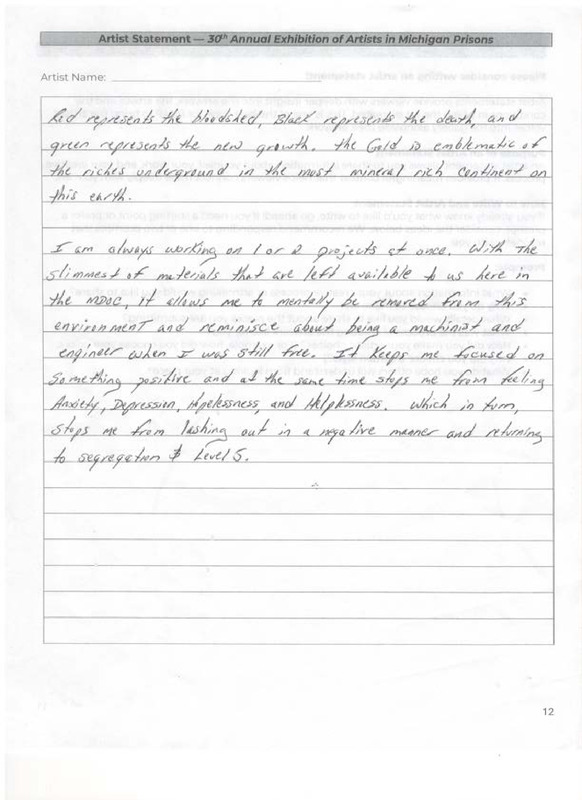 Artist Statement — 30th Annual Exhibition of Artists in Michigan Prisons
Artist Name:
Red represents the bloodshed, Black represents the death, and
green represents the new growth. The Gold is emblematic of
the riches underground in the most mineral rich continent on
this earth.
I am always working on 1 or 2 projects at once. With the
slimmest of materials that are left available to us here in
the MDOC, it allows me to mentally be removed from this
environment and reminisce about being a machinist and
engineer when I was still free. It keeps me focused on
Something positive and at the same time stops me from feeling
Anxiety, Depression, Hopelessness, and Helplessness. Which in turn,
stops me from lashing out in a negative manner and returning
to segregation & Level 5.
12